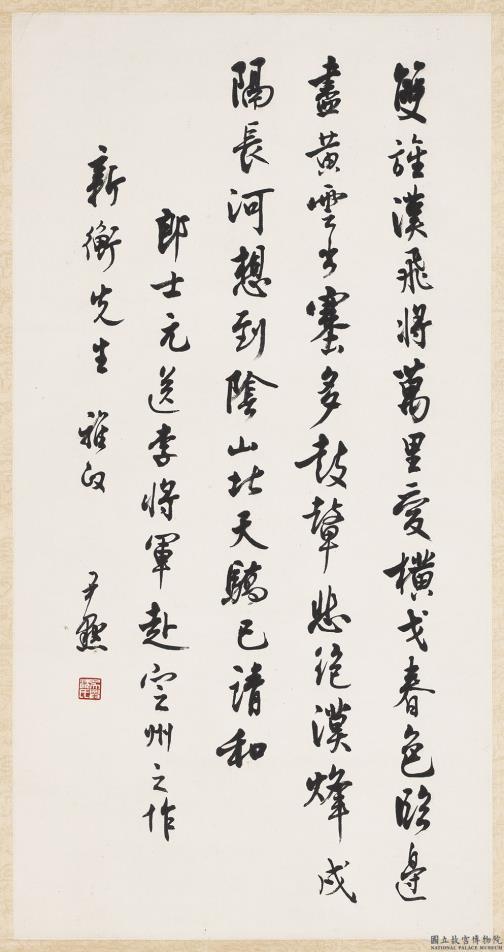 雙旌漢飛將萬里愛橫戈春色臨邊
盡黃雲出塞多鼓鼙悲絕漠烽戍
隔長河想到陰山北天驕已請和
郎士元送李將軍赴定州之作
新衡先生 雅政 尹默
國立故宮博物院
NATIONAL PALACE MUSEUM